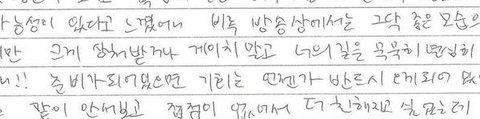 가능성이 있다고 느꼈어! 비록 방송상에서는 그닥 좋은 모습으
만 크게 상처받거나 개의치 말고 너의 길을 묵묵히 열심히
니!! 준비가 되어있으면 기회는 언젠가 반드시 오게 되어 있
같이 안서보고 접점이 없어서 더 친해지고 싶었는데